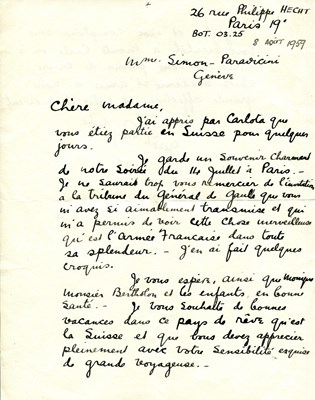 26 rue Philippe HECHT
Paris 19e
BOT. 03.25
8 AOÛT 1959
Mme. Simon-Paravicini
Genève
Chère Madame,
J'ai appris par Carlota que
vous étiez partie en Suisse pour quelques
jours.
Je garde un souvenir charmant
de notre Soirée du 14 Juillet à Paris. -
Je ne saurais trop vous remercier de l'invitation
à la tribune du Général de Gaulle que vous
m'avez si aimablement transmise et qui
m'a permis de voir cette chose merveilleuse
qu'est l'Armée Française dans toute
sa splendeur. - J'en ai fait quelques
croquis.
Je vous espère, ainsi que Monique
Monsieur Bertholon et les enfants, en bonne
Santé. - Je vous souhaite de bonnes
vacances dans ce pays de rêve qu'est
la Suisse et que vous devez apprécier
pleinement avec votre sensibilité exquise
de grande voyageuse. -